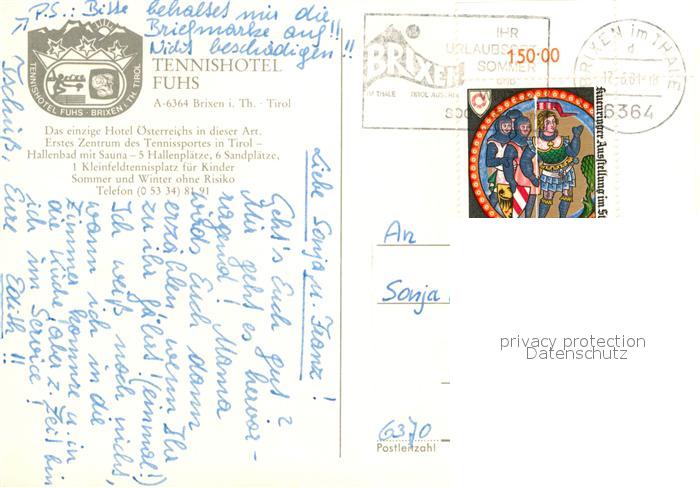 P.S.: Bitte behaltet mir die
Briefmarke auf!!
Nicht beschädigen!!
TENNISHOTEL
FUHS
A-6364 Brixen i. Th. · Tirol
TENNISHOTEL FUHS · BRIXEN I. TH. TIROL
Das einzige Hotel Österreichs in dieser Art.
Erstes Zentrum des Tennissportes in Tirol –
Hallenbad mit Sauna – 5 Hallenplätze, 6 Sandplätze,
1 Kleinfeldtennisplatz für Kinder
Sommer und Winter ohne Risiko
Telefon (0 53 34) 81 91
Liebe Sonja u. Franz!
Geht's Euch gut?
Mir geht es hervor-
ragend! Mama
wirds Euch dann
erzählen wenn Ihr
zu ihr fährt! (einmal!)
Ich weiß noch nicht,
wann ich in die
Zimmer komme u. in
die Küche, aber z. Zeit bin
ich im Service!
Tschüß, Eure Edith!!
BRIXEN
IM THALE
IHR
SOMMER
UND
150·00
BRIXEN im THALE
d
17.-6.81-18
6364
Kuenringer Ausstellung im St
An
Sonja
6370
Postleitzahl
privacy protection
Datenschutz